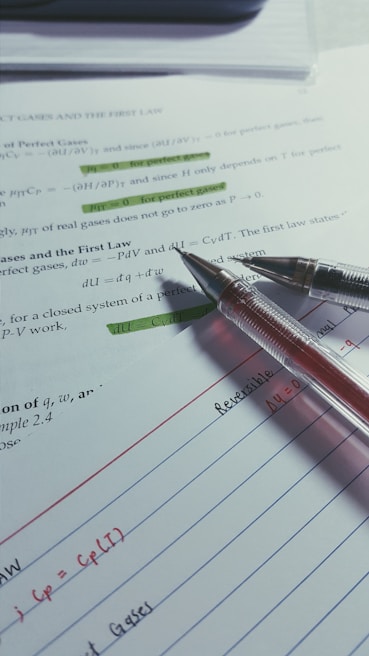 CT GASES AND THE FIRST LAW
of Perfect Gases
C_V = −(∂U/∂V)_T and since (∂U/∂V)_T = 0 for perfect gases, then
= 0 for perfect gases
μ_JT C_P = −(∂H/∂P)_T and since H only depends on T for perfect
μ_JT = 0 for perfect gases
gly, μ_JT of real gases does not go to zero as P → 0.
ases and the First Law
erfect gases, dw = −PdV and dU = C_V dT. The first law states
dU = đq + đw ed system
e, for a closed system of a perfect
P-V work,
dU =
on of q, w, an
mple 2.4
ose
Reversible
ΔU = 0
-q
AW
; Cp = Cp(T)
t Gases